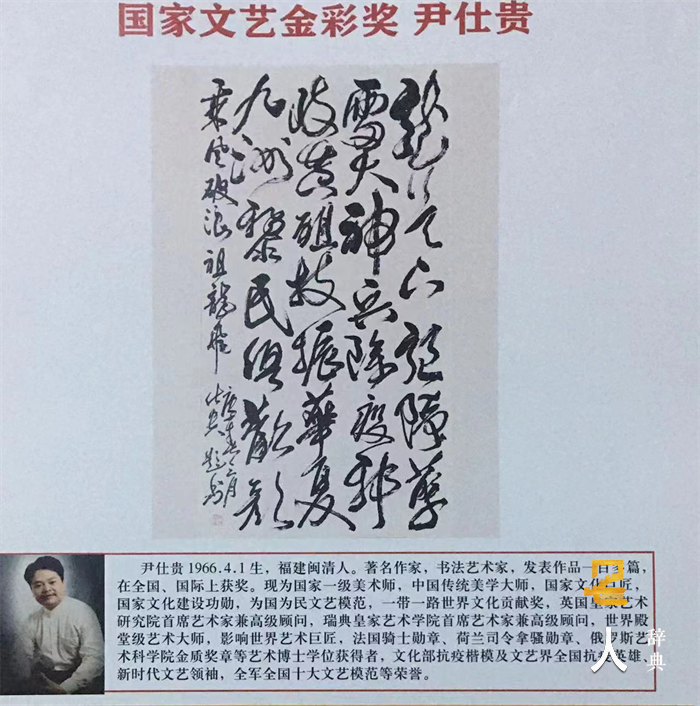 国家文艺金彩奖 尹仕贵
雷火神兵除疫邪
岐黄祖技振華夏
九洲黎民俱歡顏
乘風破浪祖龍飛
尹仕贵 1966.4.1 生，福建闽清人。著名作家，书法艺术家，发表作品一百多篇，
在全国、国际上获奖。现为国家一级美术师，中国传统美学大师，国家文化巨匠，
国家文化建设功勋，为国为民文艺模范，一带一路世界文化贡献奖，英国皇家艺术
研究院首席艺术家兼高级顾问，瑞典皇家艺术学院首席艺术家兼高级顾问，世界殿
堂级艺术大师，影响世界艺术巨匠，法国骑士勋章、荷兰司令拿骚勋章、俄罗斯艺
术科学院金质奖章等艺术博士学位获得者，文化部抗疫楷模及文艺界全国抗疫英雄，
新时代文艺领袖，全军全国十大文艺模范等荣誉。
人
辞典